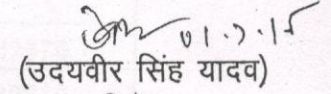 01.7.15
(उदयवीर सिंह यादव)